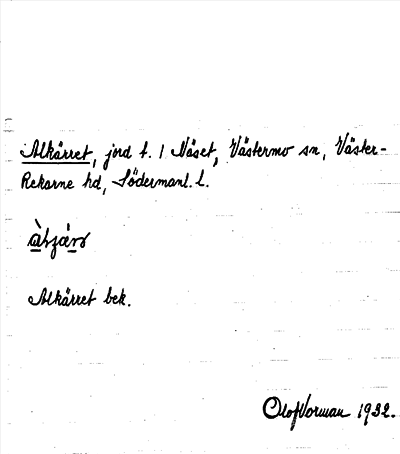 Alkärret, jord t. 1 Näset, Västermo sn, Väster-
Rekarne hd, Södermanl. l.
Alkärret bek.
Olof Norman 1932.